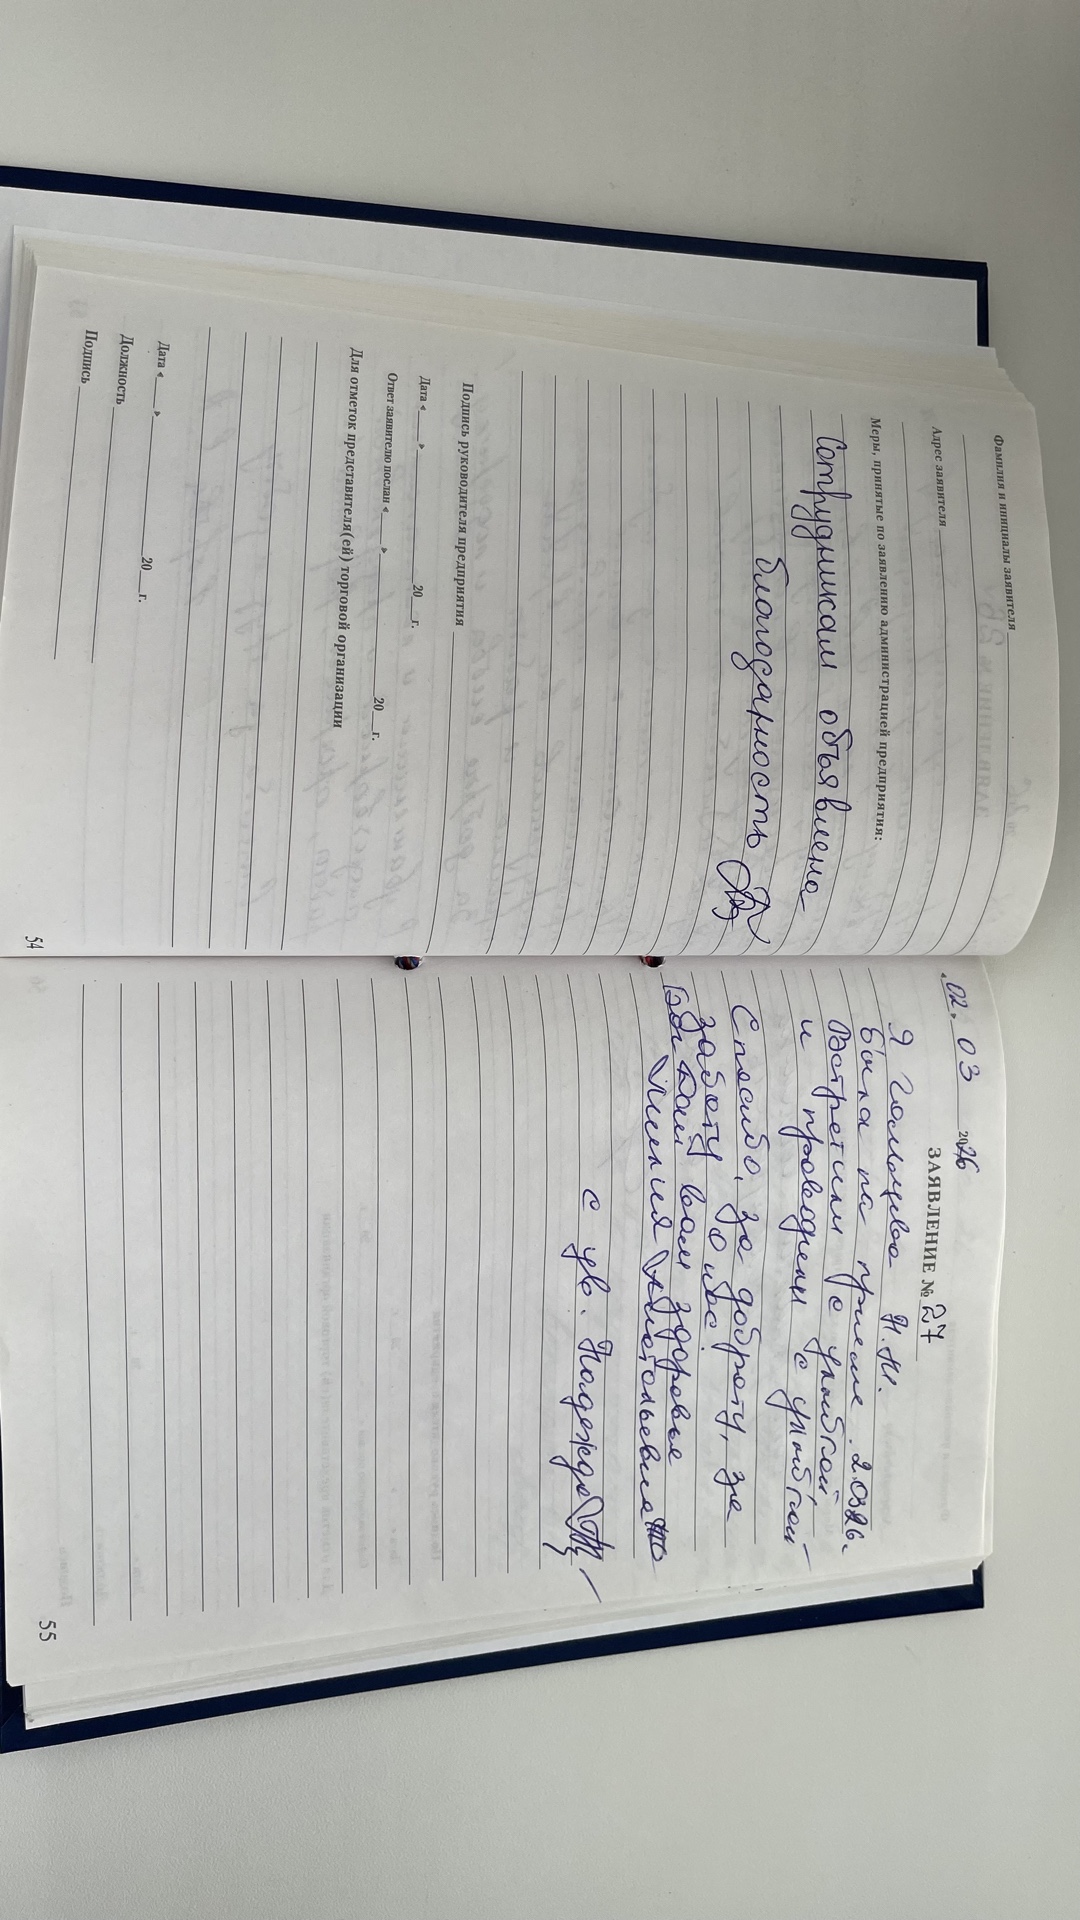 Фамилия и инициалы заявителя
Адрес заявителя
Меры, принятые по заявлению администрацией предприятия:
Сотрудникам объявлена
благодарность
Подпись руководителя предприятия
Дата « » 20 г.
Ответ заявителю послан « » 20 г.
Для отметок представителя(ей) торговой организации
Дата « » 20 г.
Должность
Подпись
54
02. 03 2026
ЗАЯВЛЕНИЕ № 27
Я Гольцева Н.
была на приеме
Встретили с улыбкой,
и проводили с улыбкой
Спасибо, за доброту, за
заботу о нас
Дай вам здоровье
Лилия Анатольевна
с ув. Надежда
55